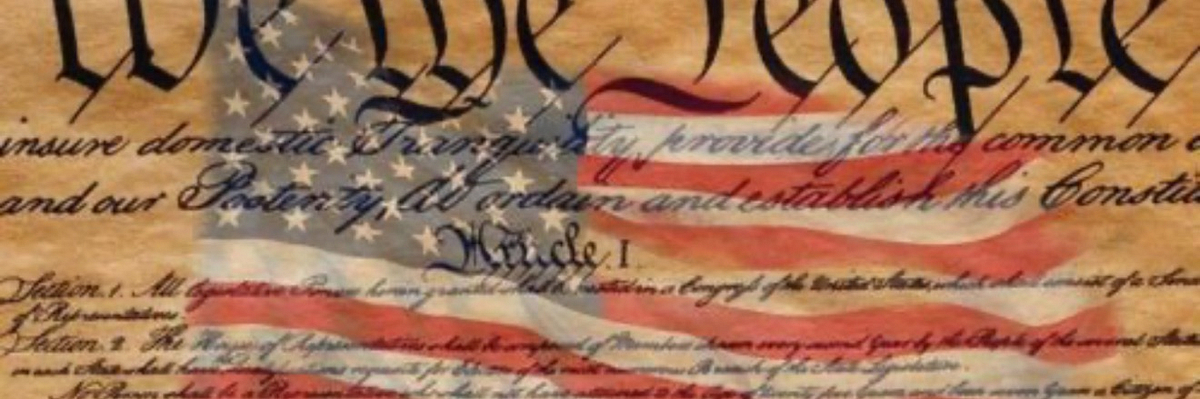 We the People
insure domestic Tranquility, provide for the common
and our Posterity, do ordain and establish this Constit
Article. I.
Section. 1. All legislative Powers herein granted shall be vested in a Congress of the United States, which shall consist of a Sena
of Representatives
Section. 2. The House of Representatives shall be composed of Members chosen every second Year by the People of the several States
in each State shall have Qualifications requisite for Electors of the most numerous Branch of the State Legislature.
No Person shall be a Representative who shall not have attained to the Age of twenty five Years and been seven Years a Citizen of